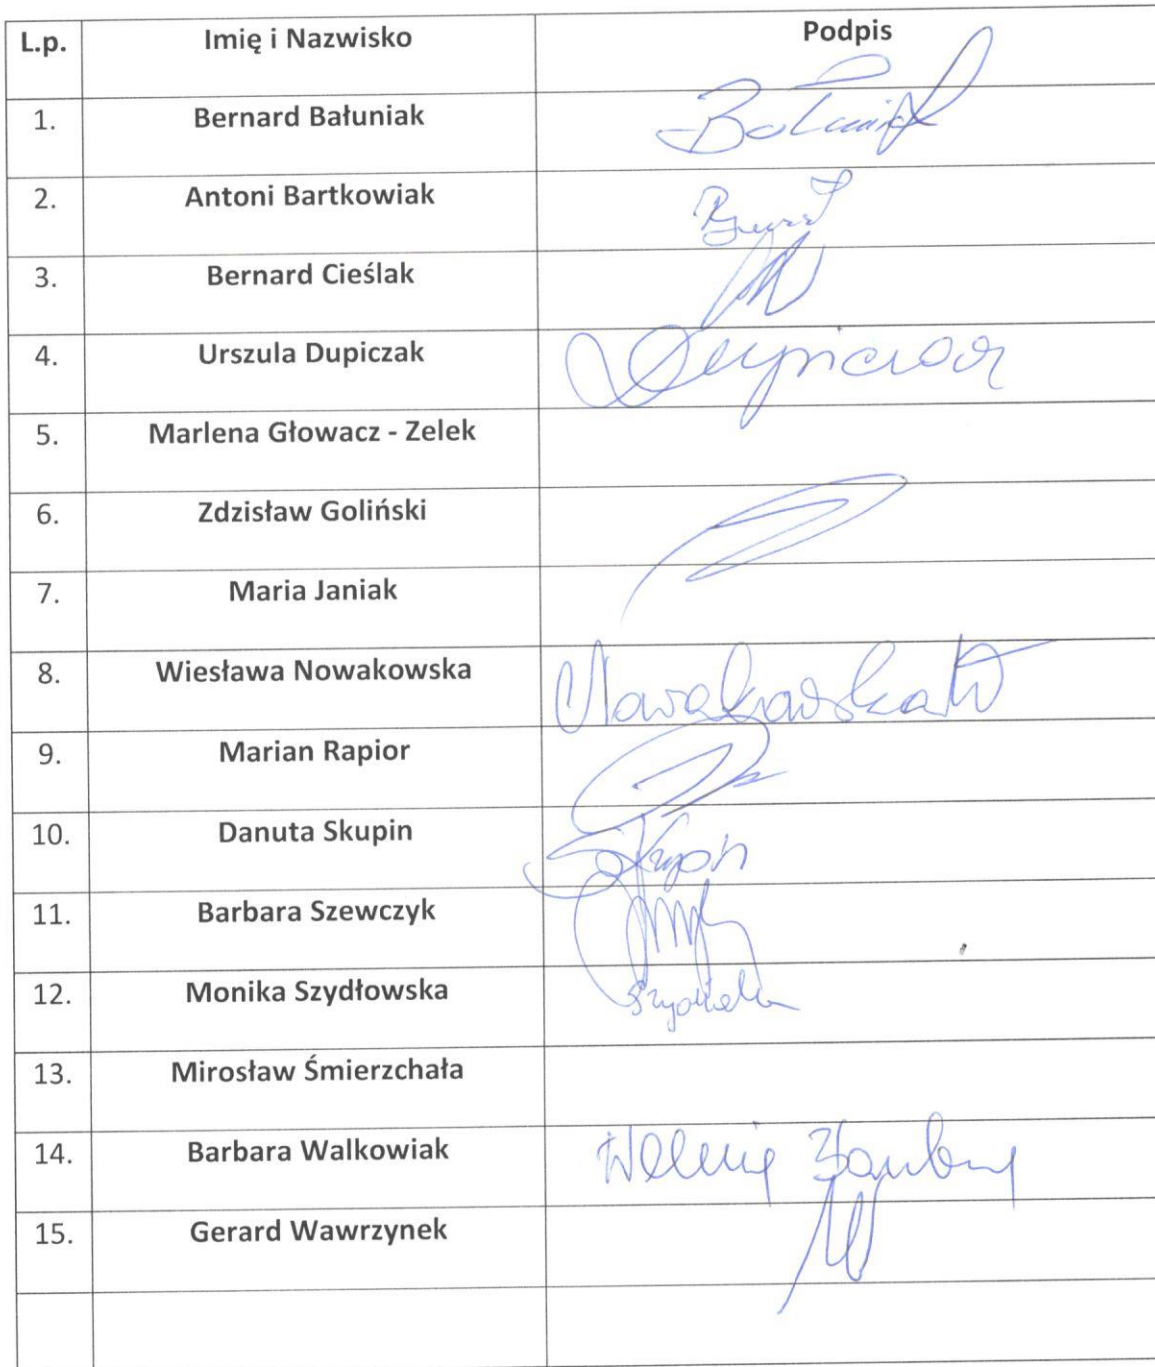 L.p. Imię i Nazwisko Podpis
1. Bernard Bałuniak Bałuniak
2. Antoni Bartkowiak
3. Bernard Cieślak
4. Urszula Dupiczak
5. Marlena Głowacz - Zelek
6. Zdzisław Goliński
7. Maria Janiak
8. Wiesława Nowakowska Nowakowska W
9. Marian Rapior
10. Danuta Skupin Skupin
11. Barbara Szewczyk
12. Monika Szydłowska
13. Mirosław Śmierzchała
14. Barbara Walkowiak
15. Gerard Wawrzynek